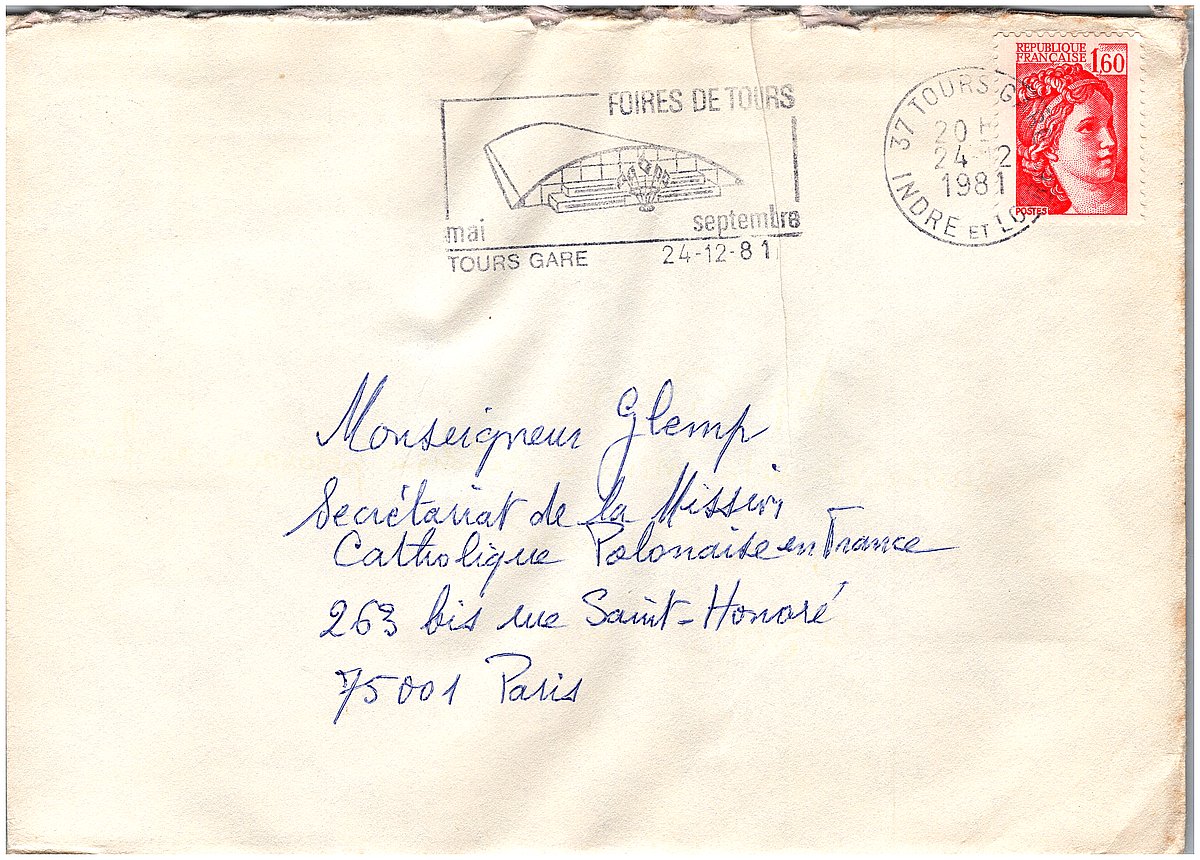 FOIRES DE TOURS
mai septembre
TOURS GARE 24-12-81
37 TOURS GARE
20 H
24-12
1981
INDRE ET LOIRE
REPUBLIQUE
FRANÇAISE 1,60
POSTES
Monseigneur Glemp
Secrétariat de la Mission
Catholique Polonaise en France
263 bis rue Saint-Honoré
75001 Paris